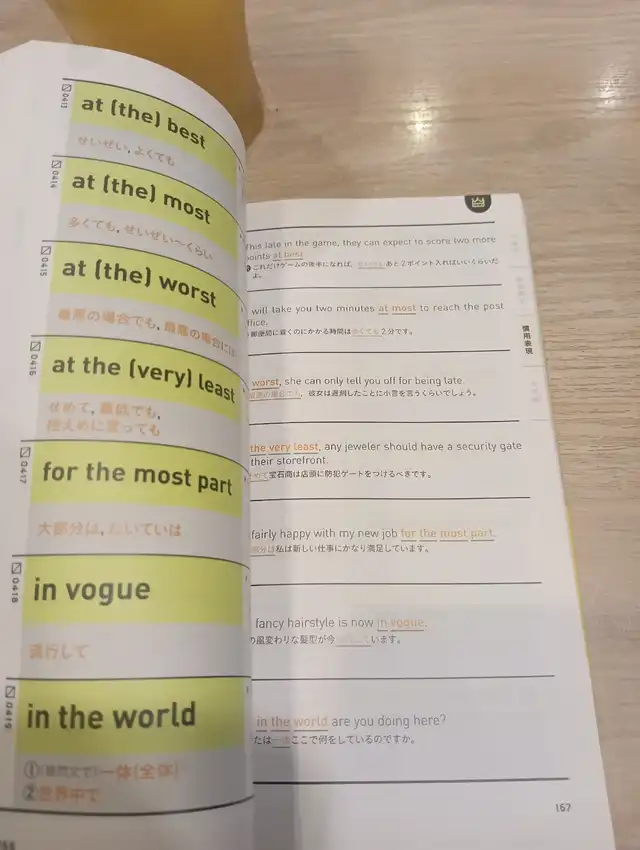 0413
at (the) best
せいぜい, よくても
0414
at (the) most
多くても, せいぜい〜くらい
0415
at (the) worst
最悪の場合でも, 最悪の場合には
0416
at the (very) least
せめて, 最低でも,
控えめに言っても
0417
for the most part
大部分は, たいていは
0418
in vogue
流行して
0419
in the world
①(疑問文で)一体(全体)
②世界中で
This late in the game, they can expect to score two more
points at best.
これだけゲームの後半になれば, せいぜいあと2ポイント入ればいいくらいだ
よ。
will take you two minutes at most to reach the post
ffice.
郵便局に着くのにかかる時間は多くても2分です。
worst, she can only tell you off for being late.
最悪の場合でも, 彼女は遅刻したことに小言を言うくらいでしょう。
the very least, any jeweler should have a security gate
their storefront.
せめて宝石商は店頭に防犯ゲートをつけるべきです。
fairly happy with my new job for the most part.
部分は私は新しい仕事にかなり満足しています。
fancy hairstyle is now in vogue.
の風変わりな髪型が今います。
in the world are you doing here?
たは一体ここで何をしているのですか。
慣用表現
157